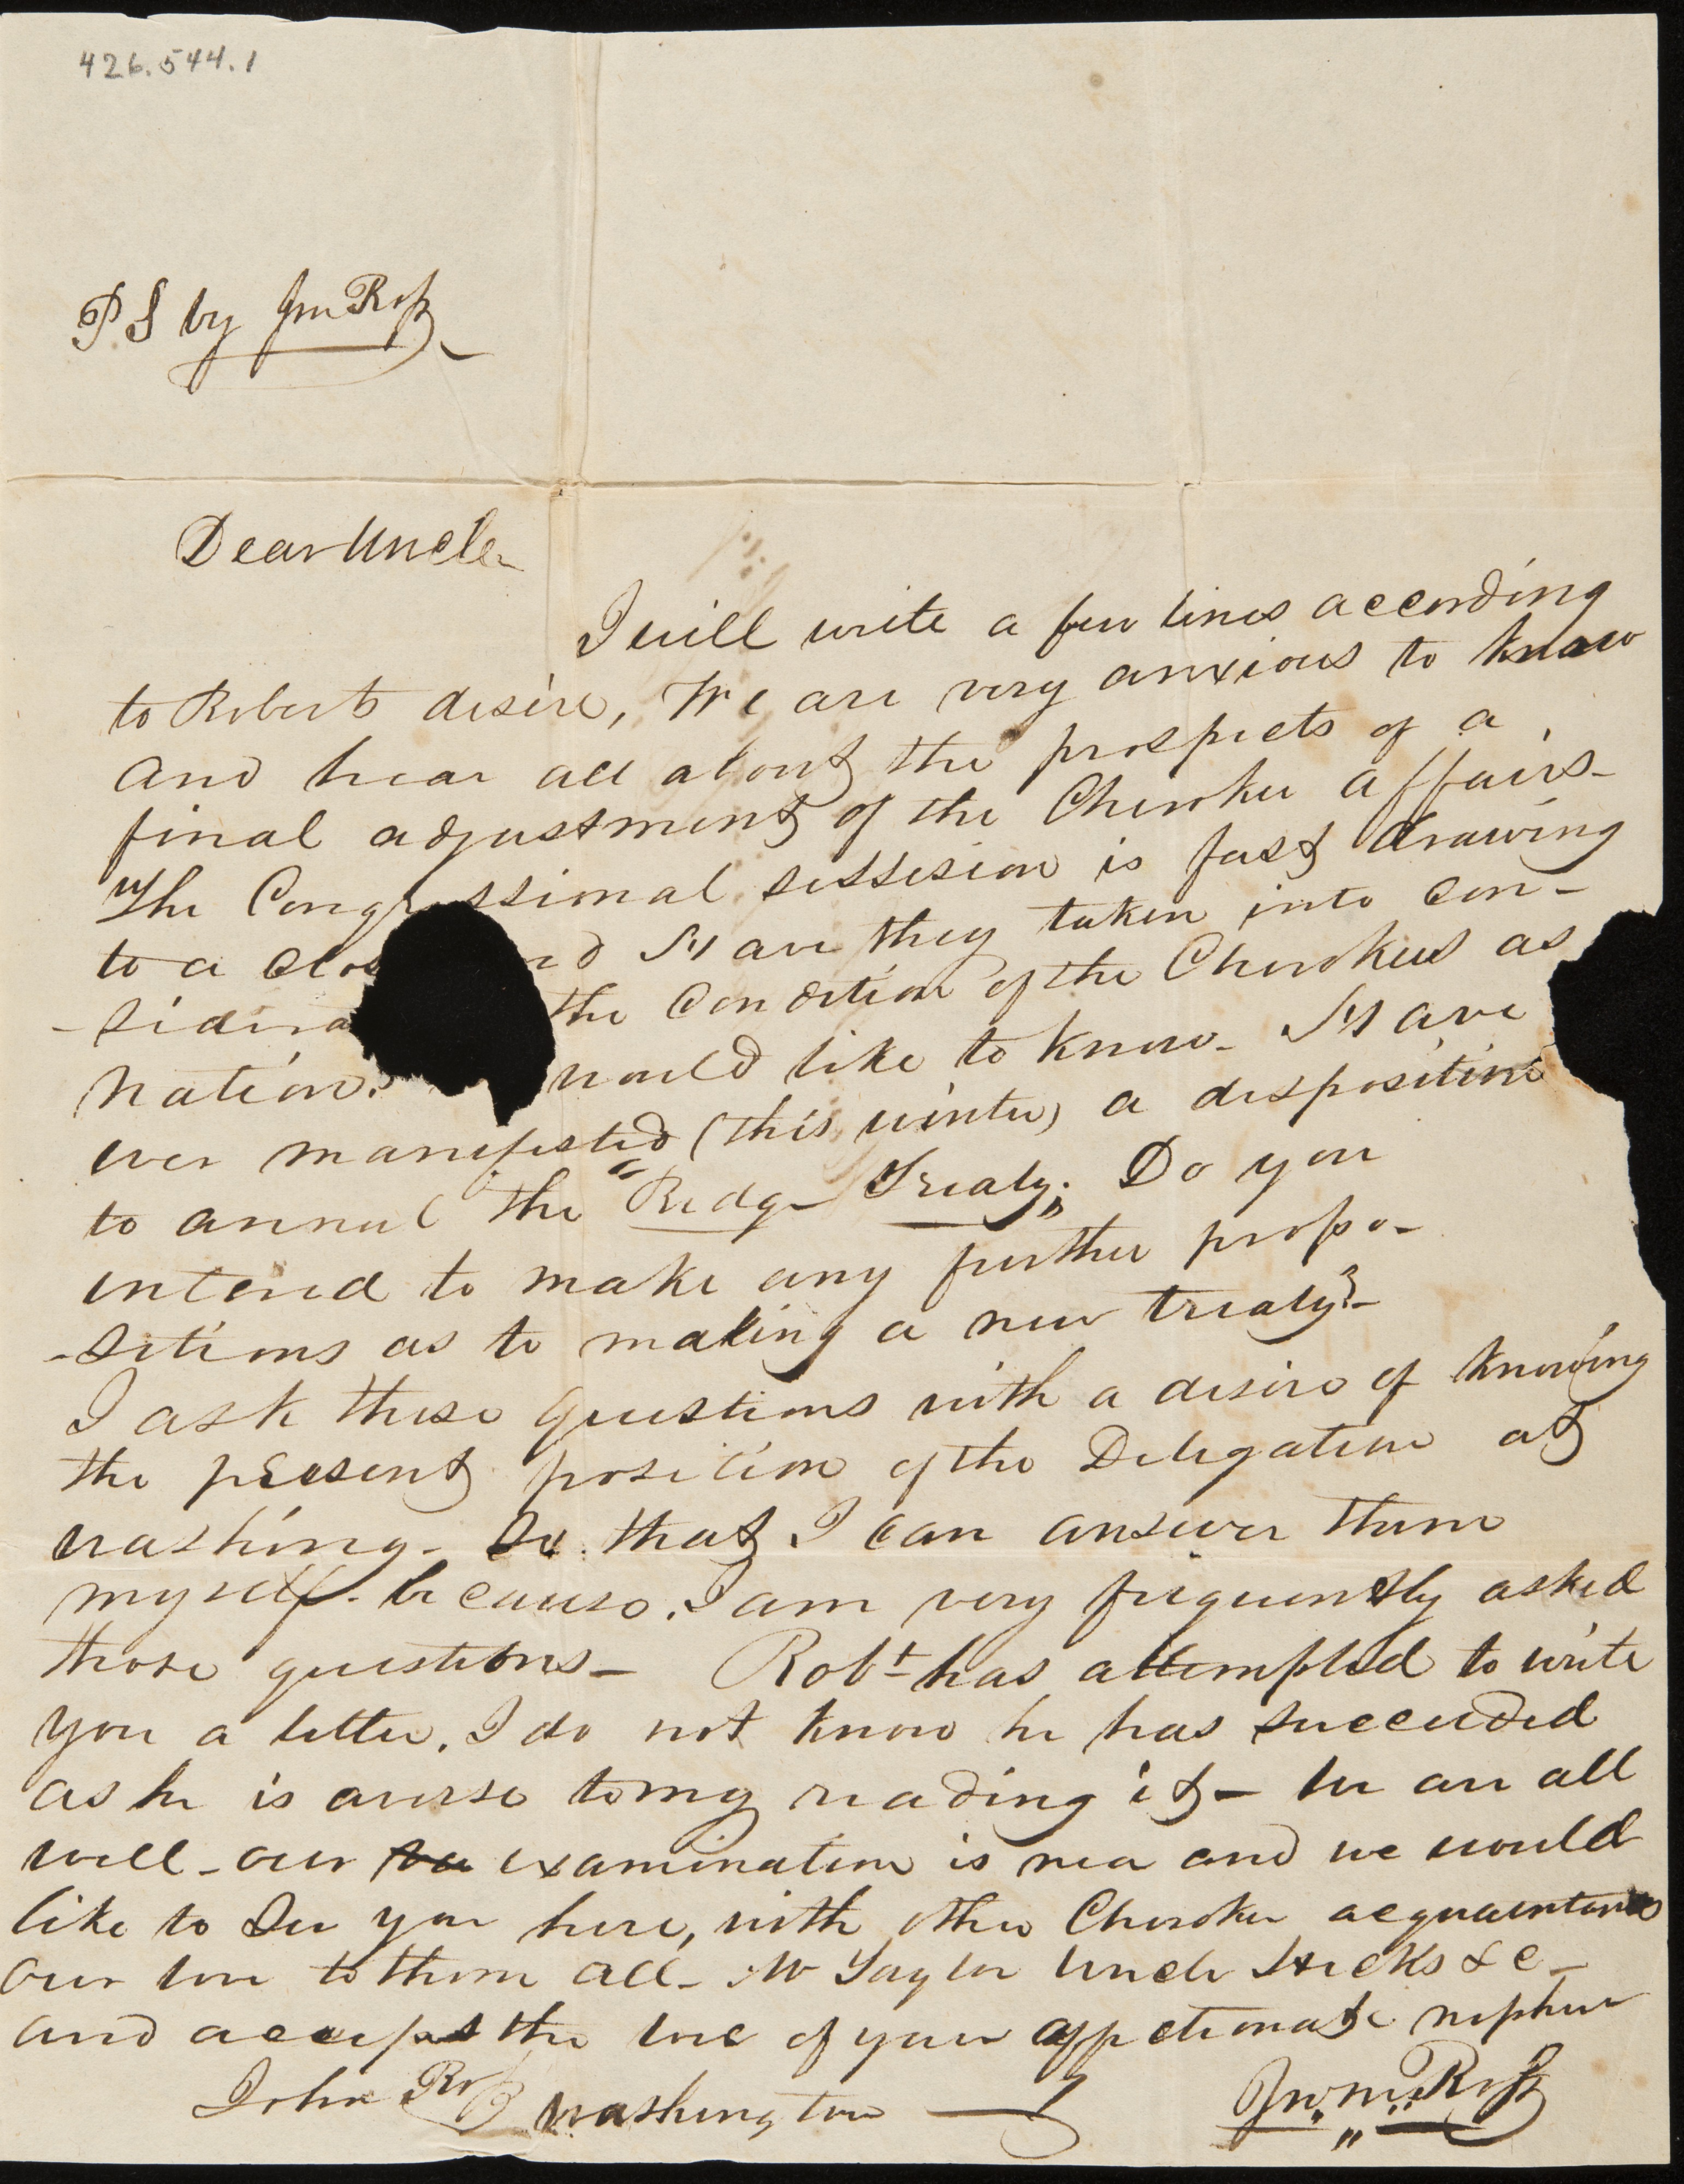 426.544.1
PS by Jno Ross
Dear Uncle
I will write a few lines according
to Roberts desire, We are very anxious to know
and hear all about the prospects of a
final adjustment of the Cherokee affairs-
The Congressional sesssion is fast drawing
to a clos nd Have they taken into con-
-sidera the Condition of the Cherokees as
nation? would like to know- Have
ever manifested (this winter) a disposition
to annul the "Ridge Treaty." Do you
intend to make any further propo-
-sitions as to making a new treaty?-
I ask these questions with a desire of knowing
the present position of the Delegation at
washing- So that I can answer them
myself. because. I am very frequently asked
those questions- Robt has attempted to write
you a letter. I do not know he has succeeded
as he is averse to my reading it- We are all
well- our examination is near and we would
like to See you here, with other Cherokee acquaintance
Our love to them all- Mr Taylor Uncle Hicks &c-
and accept the love of your affectionate nephew
John Ross Washington Jno. M. Ross